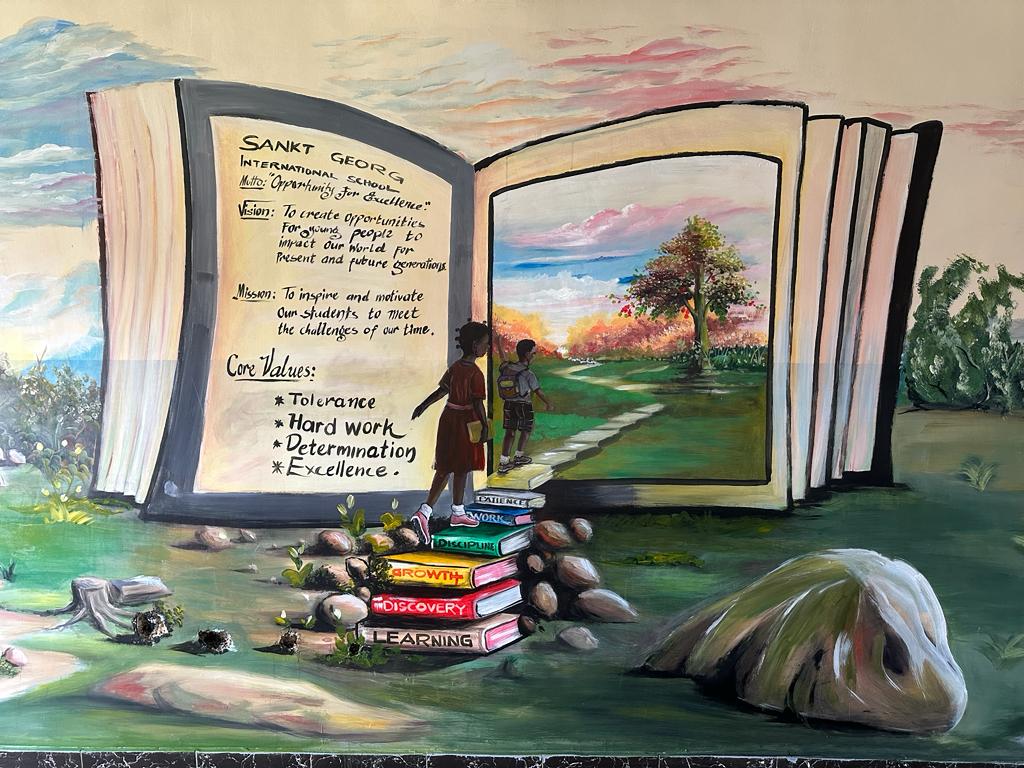 SANKT GEORG
INTERNATIONAL SCHOOL
Motto: "Opportunity for Excellence."
Vision: To create opportunities
For young people to
impact Our World For
Present and future generations
Mission: To inspire and motivate
Our students to meet
the challenges of our time.
Core Values:
* Tolerance
* Hard work
* Determination
* Excellence.
PATIENCE
WORK
DISCIPLINE
GROWTH
DISCOVERY
LEARNING